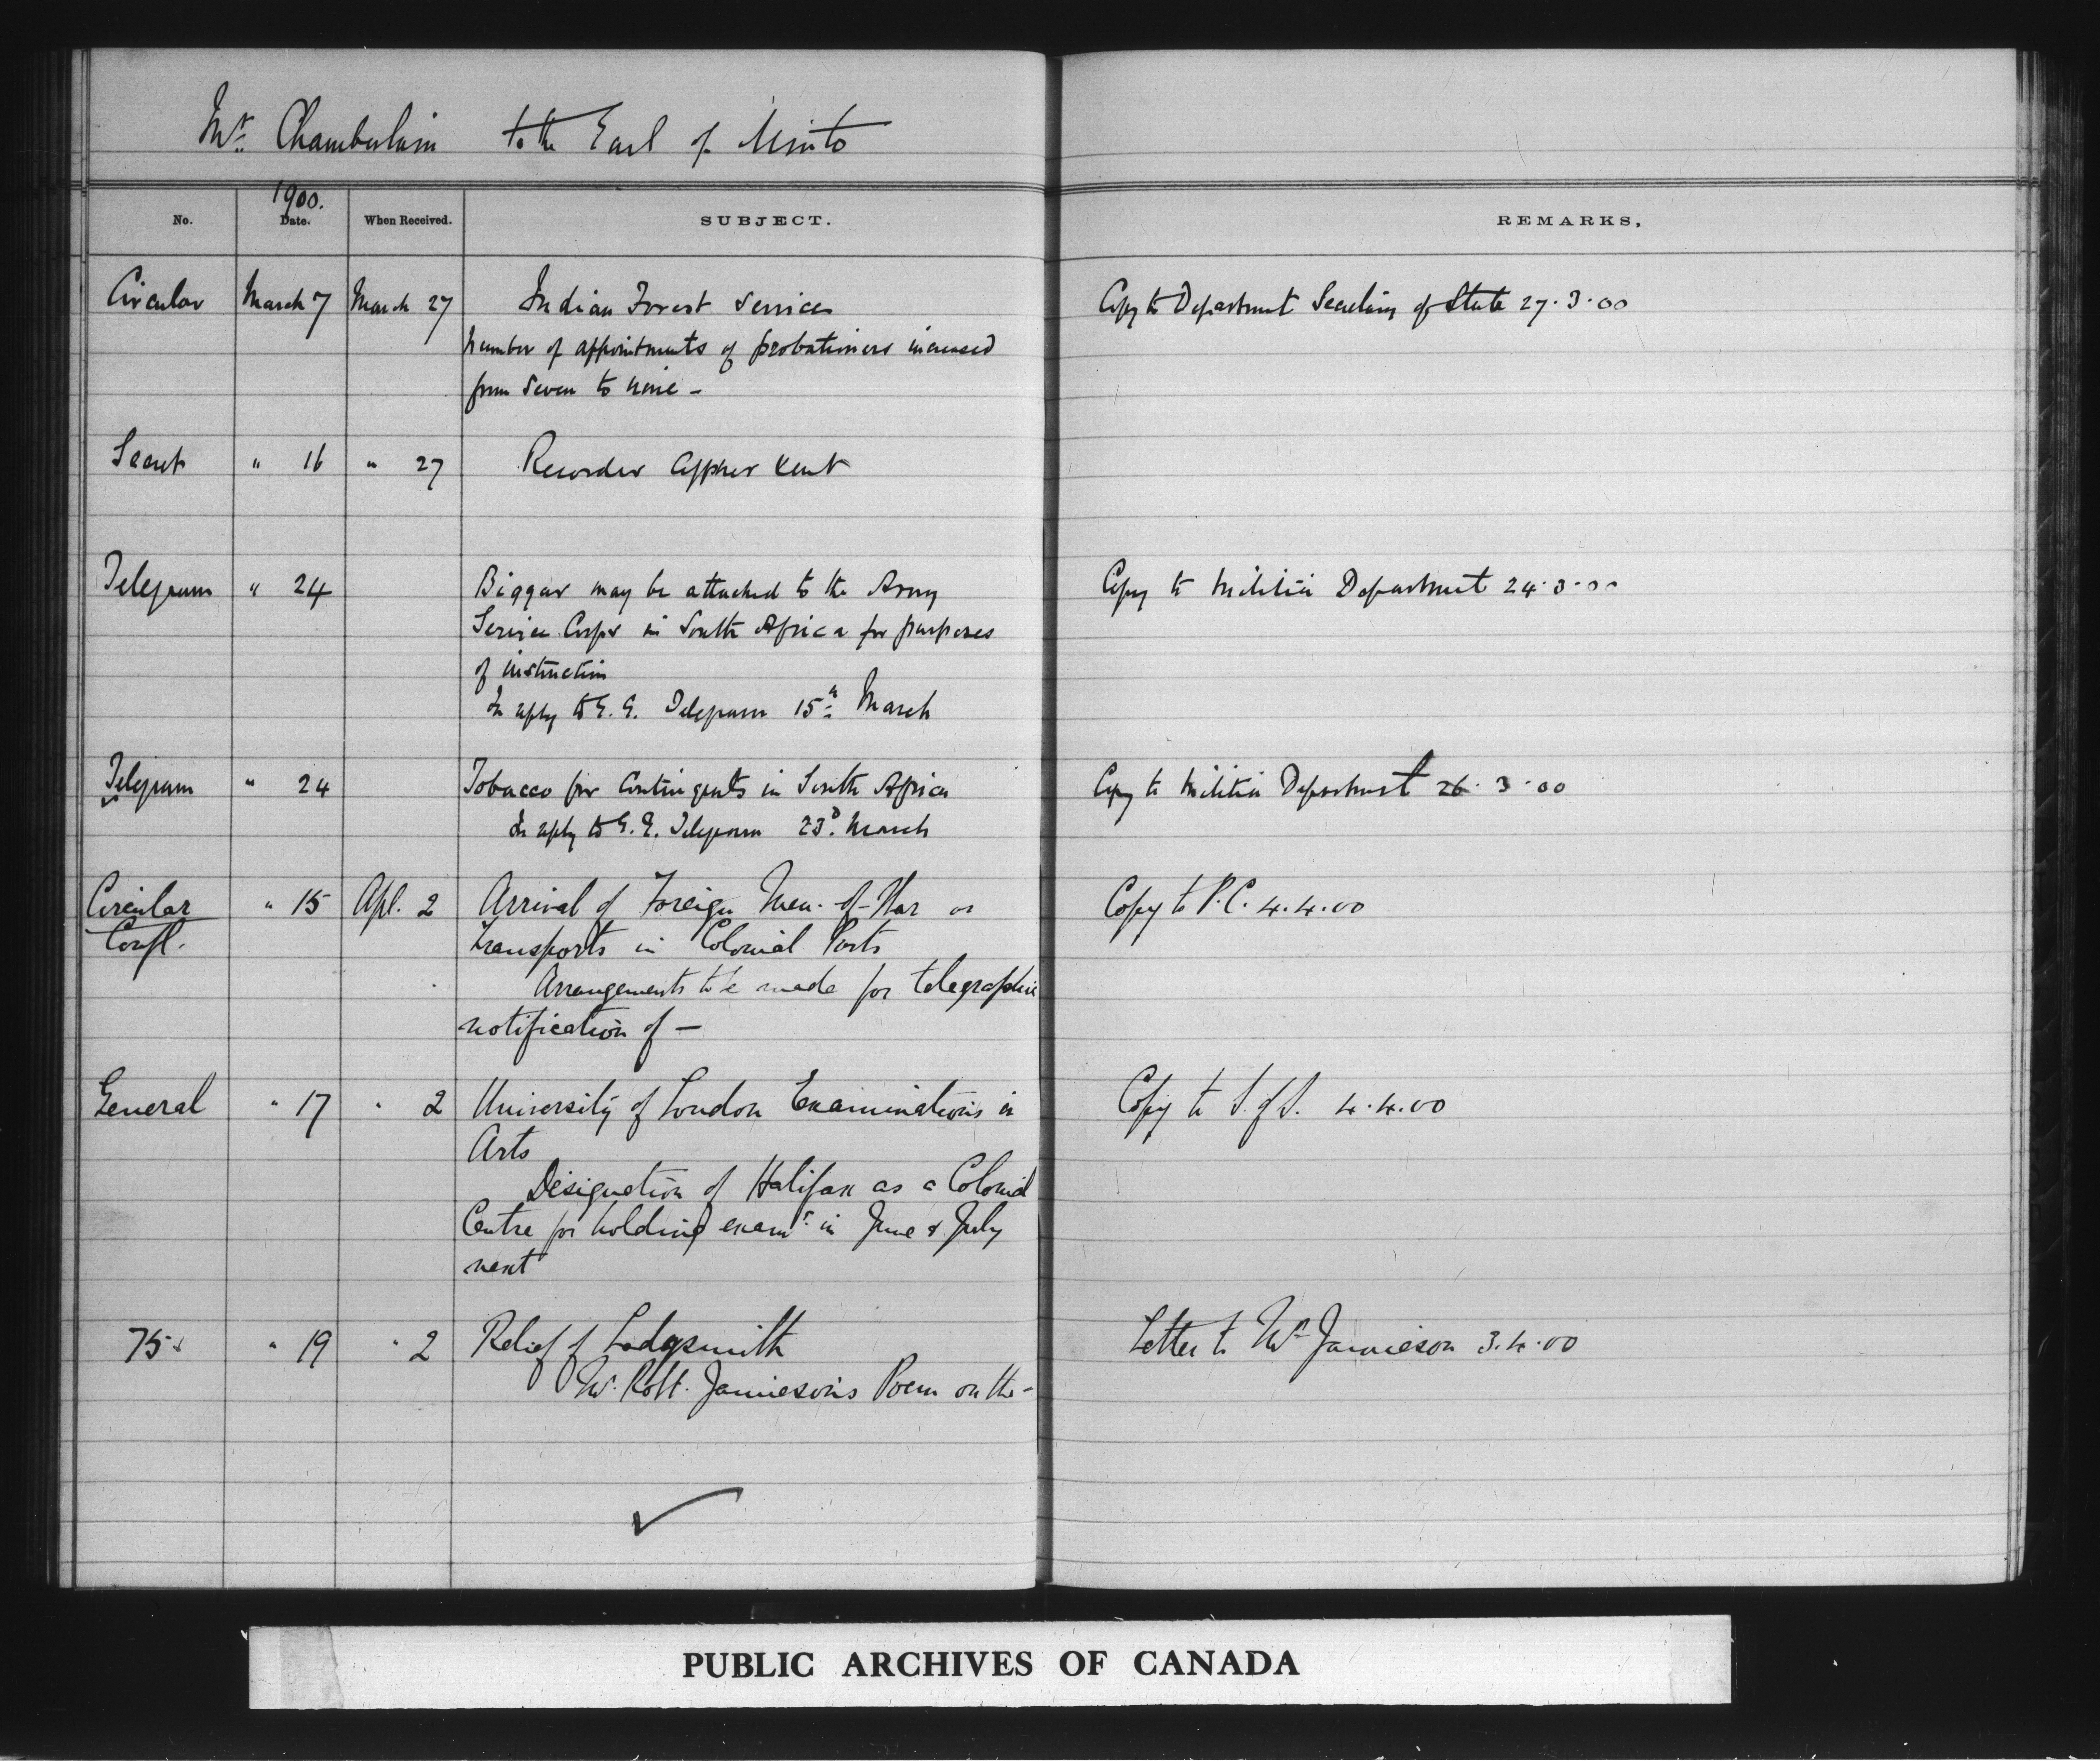 Mr. Chamberlain to the Earl of Minto
1900.
No. Date. When Received. SUBJECT. REMARKS.
Circular March 7 March 27 Indian Forest Service Copy to Department Secretary of State 27.3.00
Number of appointments of probationers increased
from Seven to nine -
Secret " 16 " 27 Recorder Cypher sent
Telegram " 24 Biggar may be attached to the Army Copy to Militia Department 24.3.00
Service Corps in South Africa for purposes
of instruction
In reply to G.G. Telegram 15th March
Telegram " 24 Tobacco for Contingents in South Africa Copy to Militia Department 26.3.00
In reply to G.G. Telegram 23d. March
Circular " 15 Apl. 2 Arrival of Foreign Men-of-War or Copy to P.C. 4.4.00
Confl. Transports in Colonial Ports
Arrangements to be made for telegraphic
notification of —
General " 17 " 2 University of London Examinations in Copy to S. of S. 4.4.00
Arts
Designation of Halifax as a Colonial
Centre for holding exams. in June & July
next
75 " 19 " 2 Relief of Ladysmith Letter to Mr Jamieson 3.4.00
Mr. Robt. Jamieson's Poem on the -
PUBLIC ARCHIVES OF CANADA